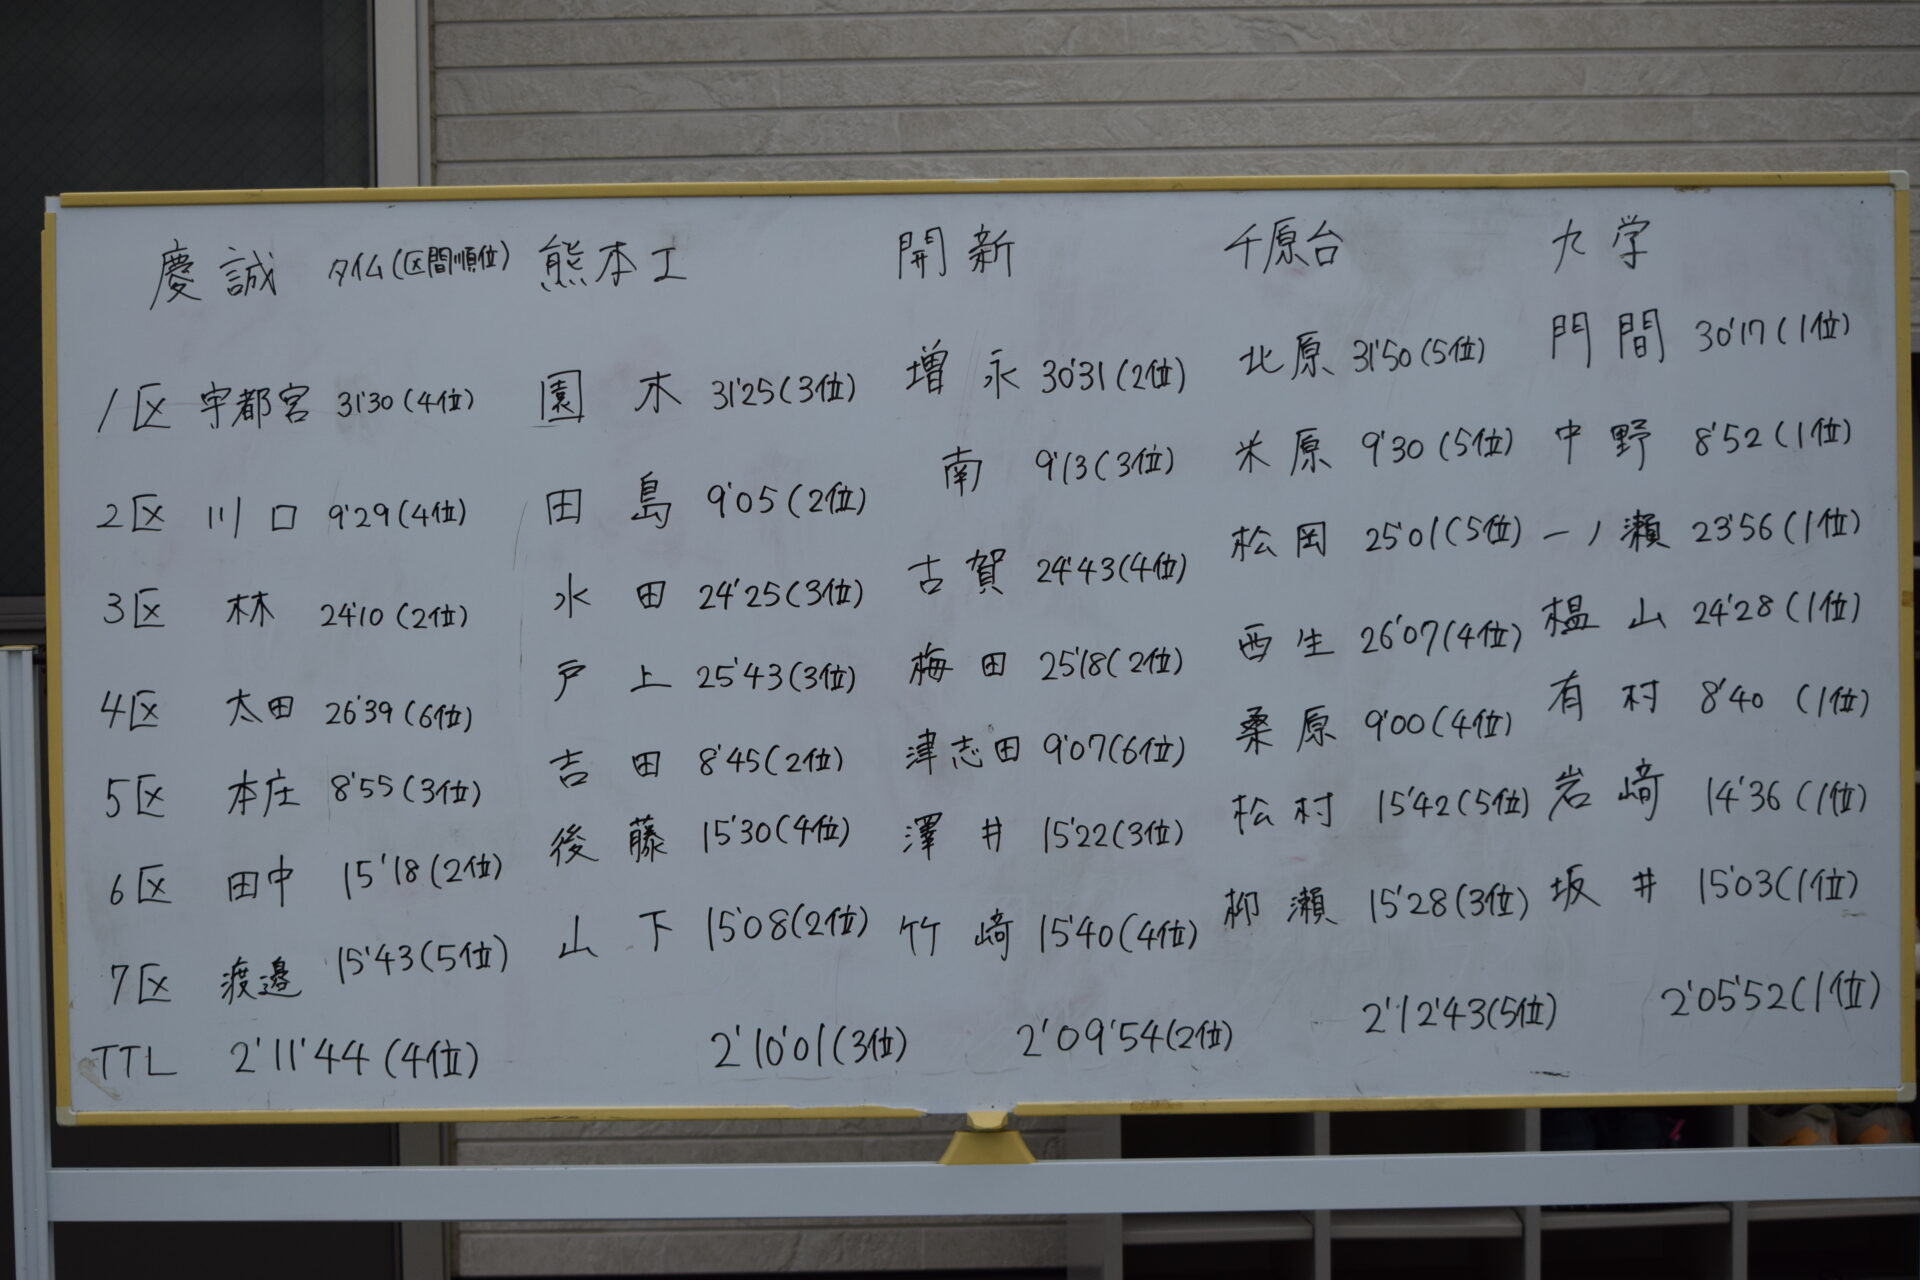 慶誠 タイム(区間順位) 熊本工 開新 千原台 九学
1区 宇都宮 31'30(4位) 園木 31'25(3位) 増永 30'31(2位) 北原 31'50(5位) 門間 30'17(1位)
2区 川口 9'29(4位) 田島 9'05(2位) 南 9'13(3位) 米原 9'30(5位) 中野 8'52(1位)
3区 林 24'10(2位) 水田 24'25(3位) 古賀 24'43(4位) 松岡 25'01(5位) 一ノ瀬 23'56(1位)
4区 太田 26'39(6位) 戸上 25'43(3位) 梅田 25'18(2位) 西生 26'07(4位) 榲山 24'28(1位)
5区 本庄 8'55(3位) 吉田 8'45(2位) 津志田 9'07(6位) 桑原 9'00(4位) 有村 8'40(1位)
6区 田中 15'18(2位) 後藤 15'30(4位) 澤井 15'22(3位) 松村 15'42(5位) 岩﨑 14'36(1位)
7区 渡邊 15'43(5位) 山下 15'08(2位) 竹﨑 15'40(4位) 柳瀬 15'28(3位) 坂井 15'03(1位)
TTL 2'11'44(4位) 2'10'01(3位) 2'09'54(2位) 2'12'43(5位) 2'05'52(1位)